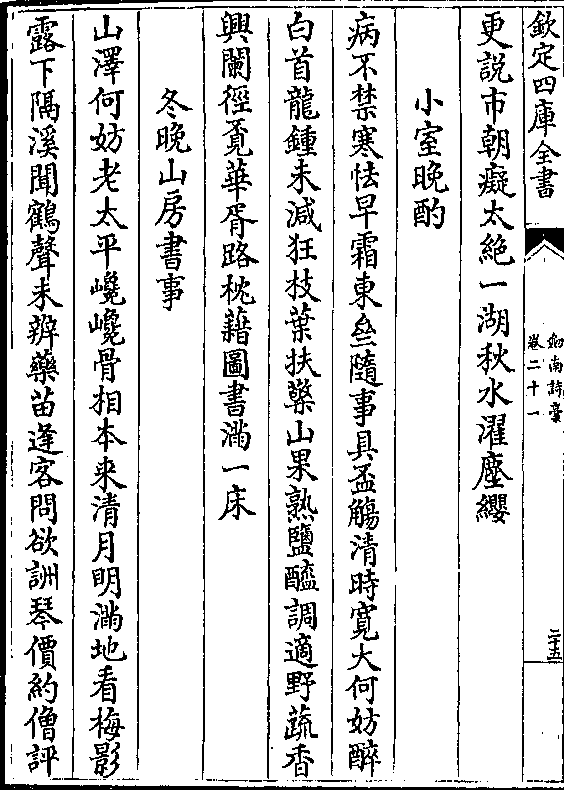 欽定四庫全書
劔南詩藁
卷二十一
二十五
更説市朝癡太絶一湖秋水濯塵纓
小室晩酌
病不禁寒怯早霜東壘隨事具盃觴清時寛大何妨醉
白首龍鍾未減狂枝葉扶槃山果熟鹽醯調適野蔬香
興闌徑覓華胥路枕藉圖書滿一床
冬晩山房書事
山澤何妨老太平巉巉骨相本来清月明滿地看梅影
露下隔溪聞鶴聲未辨藥苗逢客問欲詶琴價約僧評